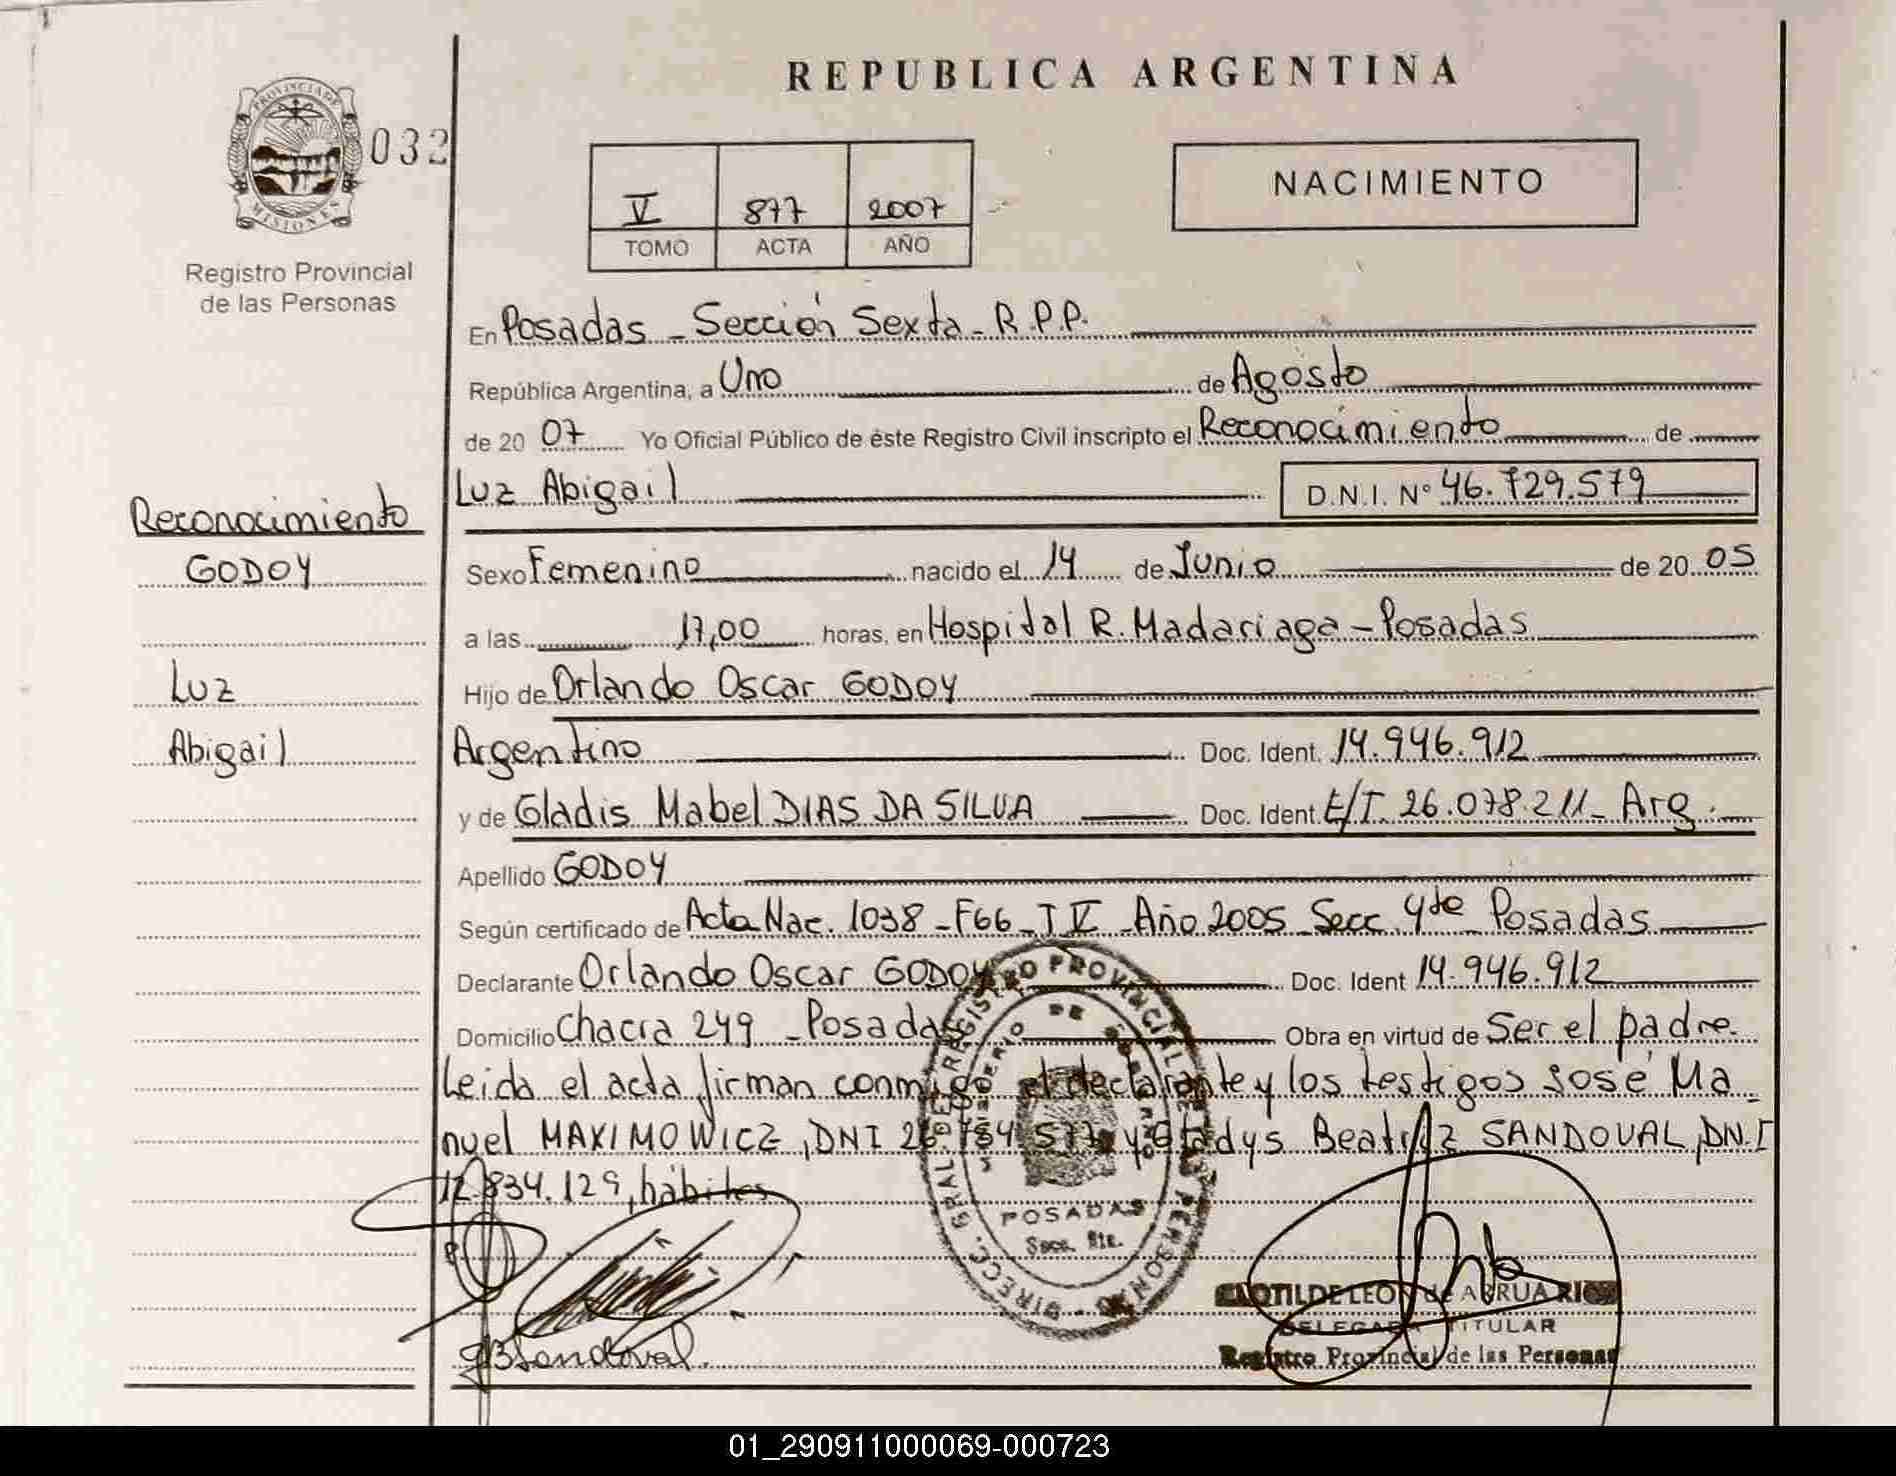 REPUBLICA ARGENTINA
PROVINCIA DE
MISIONES
032
Registro Provincial
de las Personas
V 877 2007
TOMO ACTA AÑO
NACIMIENTO
En Posadas - Sección Sexta - R.P.P.
República Argentina, a Uno de Agosto
de 20 07 Yo Oficial Público de éste Registro Civil inscripto el Reconocimiento de
Luz Abigail D.N.I. Nº 46.729.579
Reconocimiento
GODOY
Luz
Abigail
Sexo Femenino nacido el 14 de Junio de 20 05
a las 17,00 horas, en Hospital R. Madariaga - Posadas
Hijo de Orlando Oscar GODOY
Argentino Doc. Ident. 14.946.912
y de Gladis Mabel DIAS DA SILVA Doc. Ident. E/T. 26.078.211 - Arg.
Apellido GODOY
Según certificado de Acta Nac. 1038 - F66 - T IV - Año 2005 - Secc. 4te Posadas
Declarante Orlando Oscar GODOY Doc. Ident 14.946.912
Domicilio Chacra 249 - Posadas Obra en virtud de Ser el padre.
Leida el acta firman conmigo el declarante y los testigos José Ma
nuel MAXIMOWICZ, DNI 26 577 y Gladys Beatriz SANDOVAL, DN.I
12.834.129, hábiles
DIRECC. GRAL. DEL REGISTRO PROVINCIAL DE LAS PERSONAS
MINISTERIO DE GOBIERNO
POSADAS
Secc. 6ta.
gBSandoval.
CLOTILDE LEON de ARRUA RIOS
DELEGADA TITULAR
Registro Provincial de las Personas
01_290911000069-000723